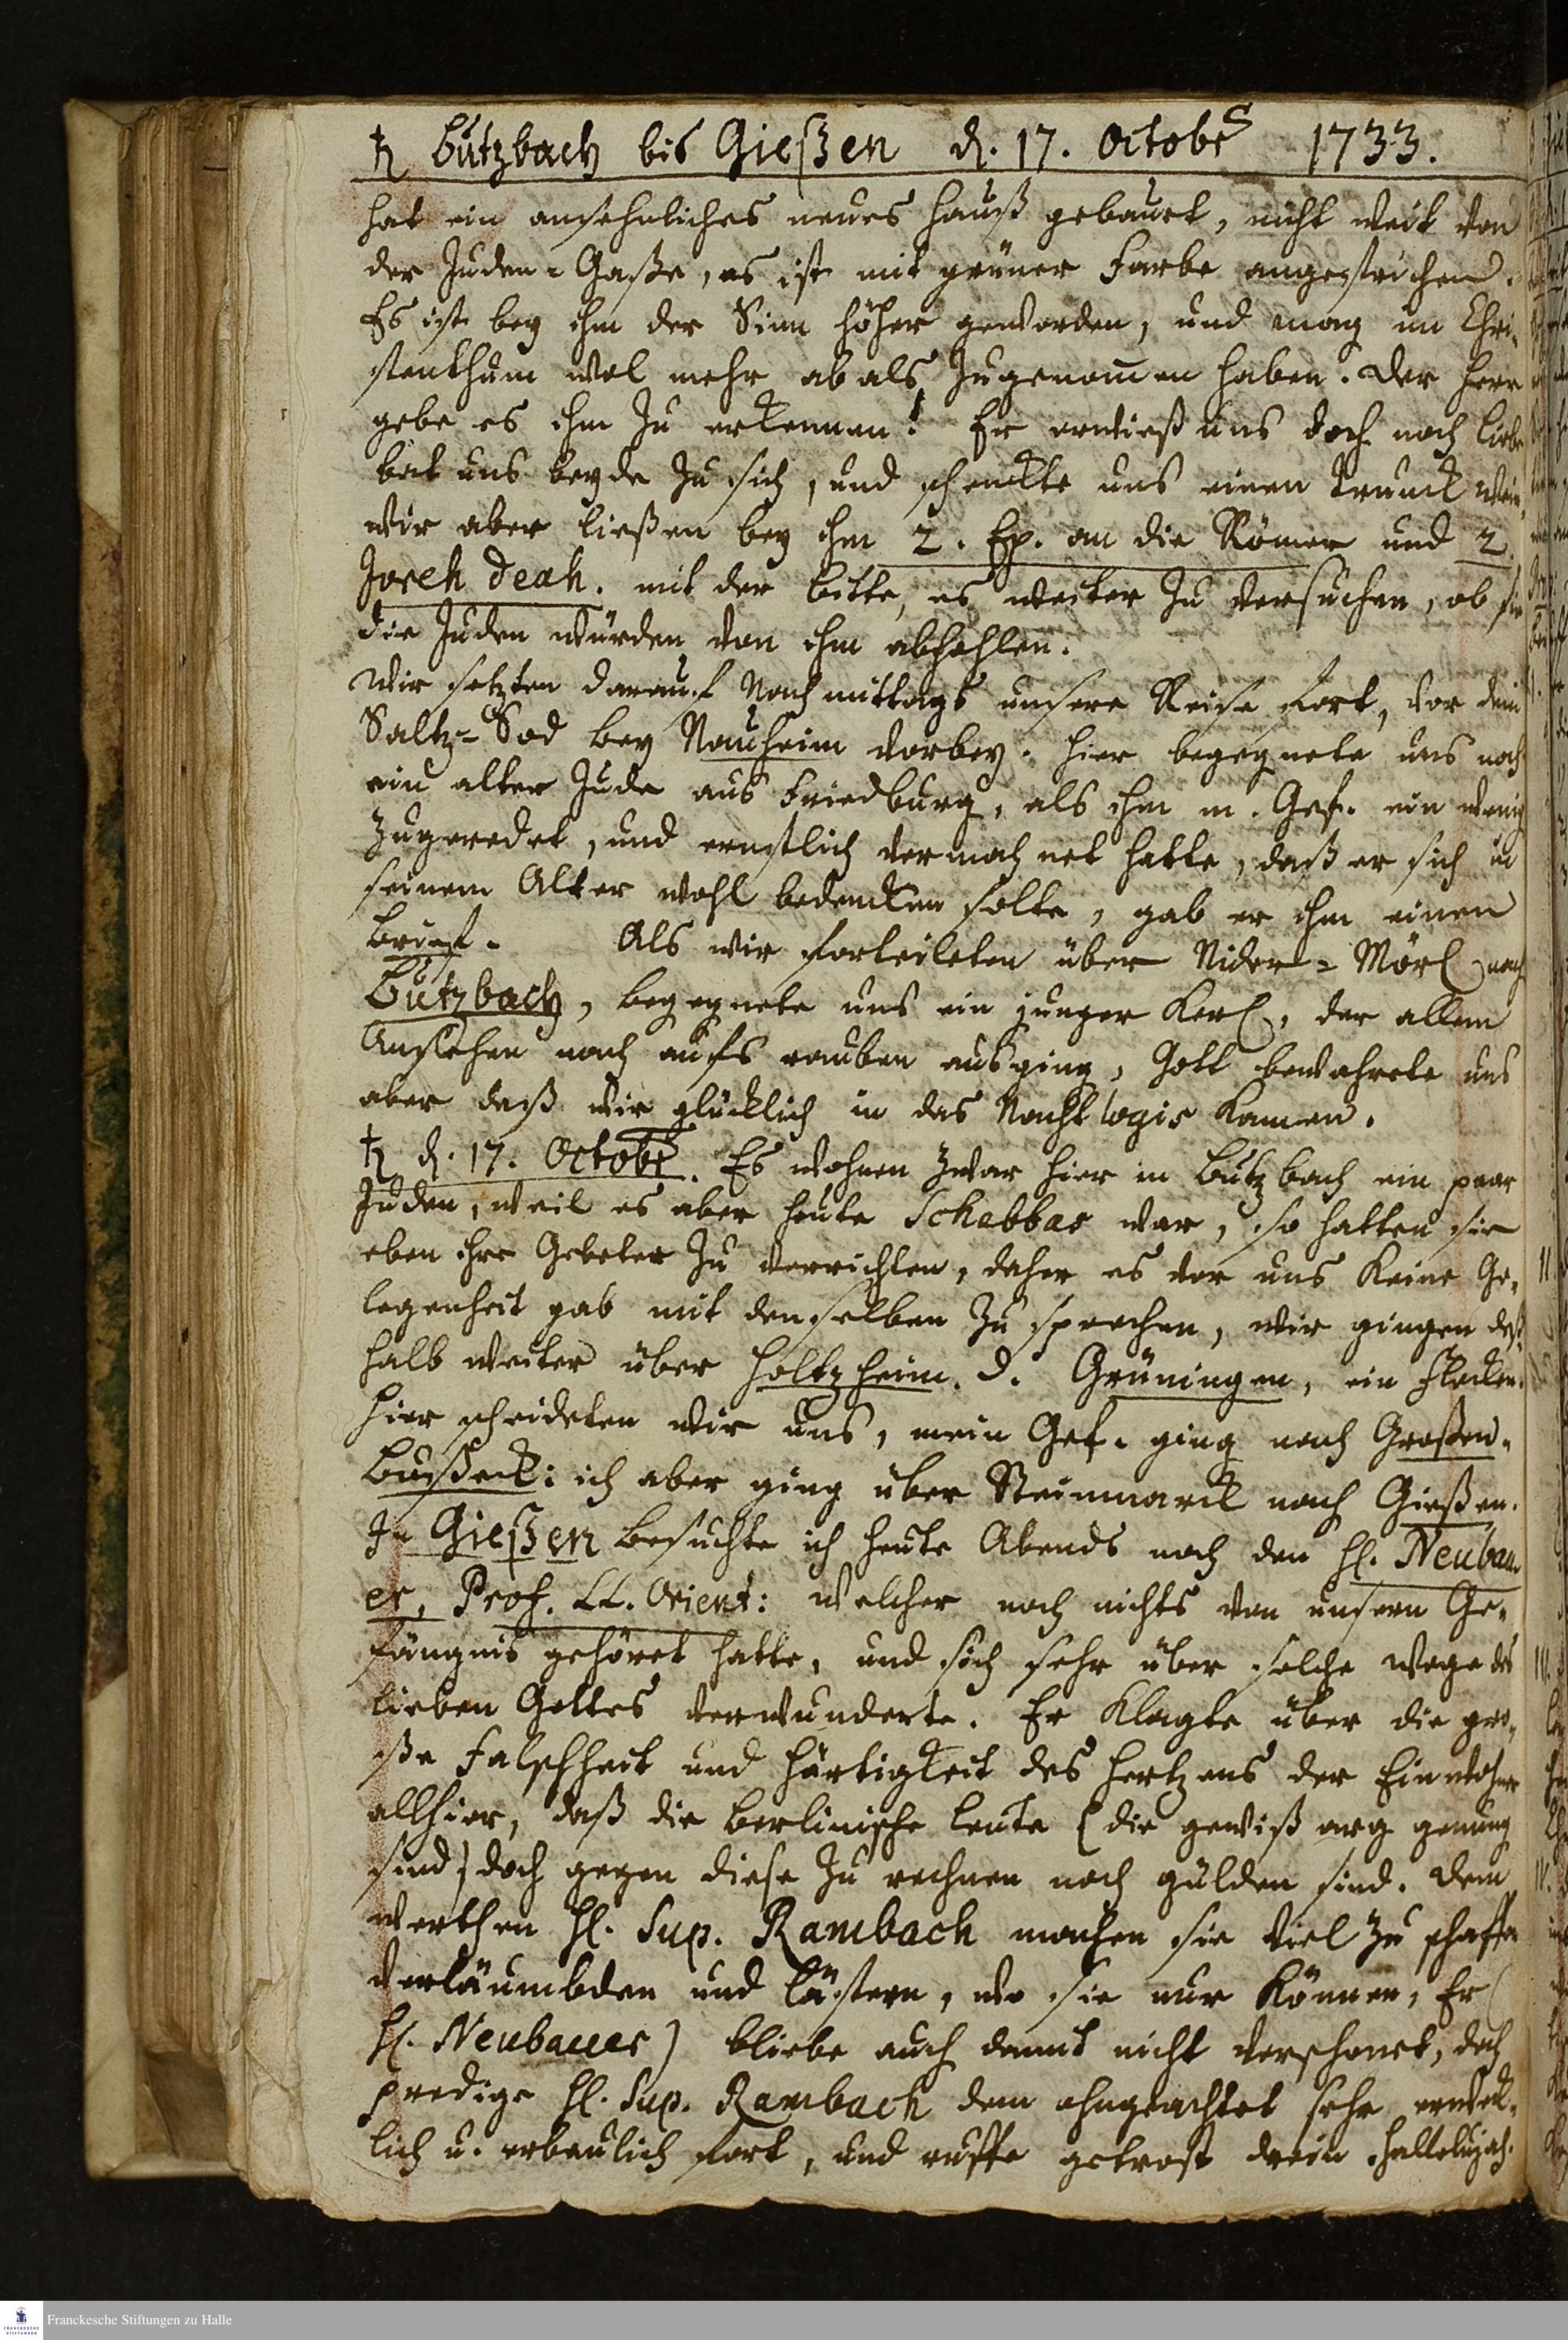 ♄ Butzbach bis Gießen d. 17. Octobr 1733.
hat ein ansehnliches neues Hauß gebauet, nicht weit von
der Juden-Gaße, es ist mit grüner Farbe angestrichen.
Es ist bey ihm der Sinn höher geworden, und mag im Chri-
stenthum wol mehr ab als zugenom̄en haben. Der Herr
gebe es ihm zu erkennen! Er erwieß uns doch noch Liebe
bat uns beyde zu sich, und schenckte uns einen Trunck Wein,
wir aber ließen bey ihm 2. Ep. an die Römer und 2
Joreh deah. mit der bitte, es weiter zu versuchen, ob sie
die Juden würden von ihm abhohlen.
Wir setzten darauf Nachmittags unsere Reise fort, vor dem
Saltz-Sod bey Nauheim vorbey. Hier begegnete uns noch
ein alter Jude aus Friedburg, als ihm m. Gef. ein wenig
zugeredet, und ernstlich vermahnet hatte, daß er sich in
seinem Alter wohl bedencken solte, gab er ihm einen
Brief. Als wir forteileten über Nider-Mörl nach
Butzbach, begegnete uns ein junger Kerl, der allem
Ansehen nach aufs rauben ausging, Gott bewahrete uns
aber daß wir glücklich in das Nachtlogis kamen.
♄ d. 17. Octobr. Es wohnen zwar hier in Butzbach ein paar
Juden, weil es aber heute Schabbas war, so hatten sie
eben ihre Gebeter zu verrichten, daher es vor uns keine Ge-
legenheit gab mit denselben zu sprechen, wir gingen deß-
halb weiter über Holtzheim. d. Grüningen, ein Flecken.
Hier scheideten wir uns, mein Gef. ging nach Großen-
Bußeck: ich aber ging über Steinmarck nach Gießen.
In Gießen besuchte ich heute Abends noch den H. Neubau
er, Prof. LL. Orient: welcher noch nichts von unsern Ge-
fängnis gehöret hatte, und sich sehr über solche Wege des
lieben Gottes verwunderte. Er klagte über die gro-
ße Falschheit und Härtigkeit des Hertzens der Einwohner
allhier, daß die Berlinische Leute (die gewiß arg genung
sind) doch gegen diese zu rechnen noch gülden sind. Dem
werthen H. Sup. Rambach machen sie viel zu schaffen
verläumbden und lästern, wo sie nur können, Er (
H. Neubauer) bliebe auch damit nicht verschonet, doch
predige H. Sup. Rambach dem ohngeachtet sehr erweck-
lich u. erbaulich fort, und ruffe getrost drein. Hallelujah.
Franckesche Stiftungen zu Halle